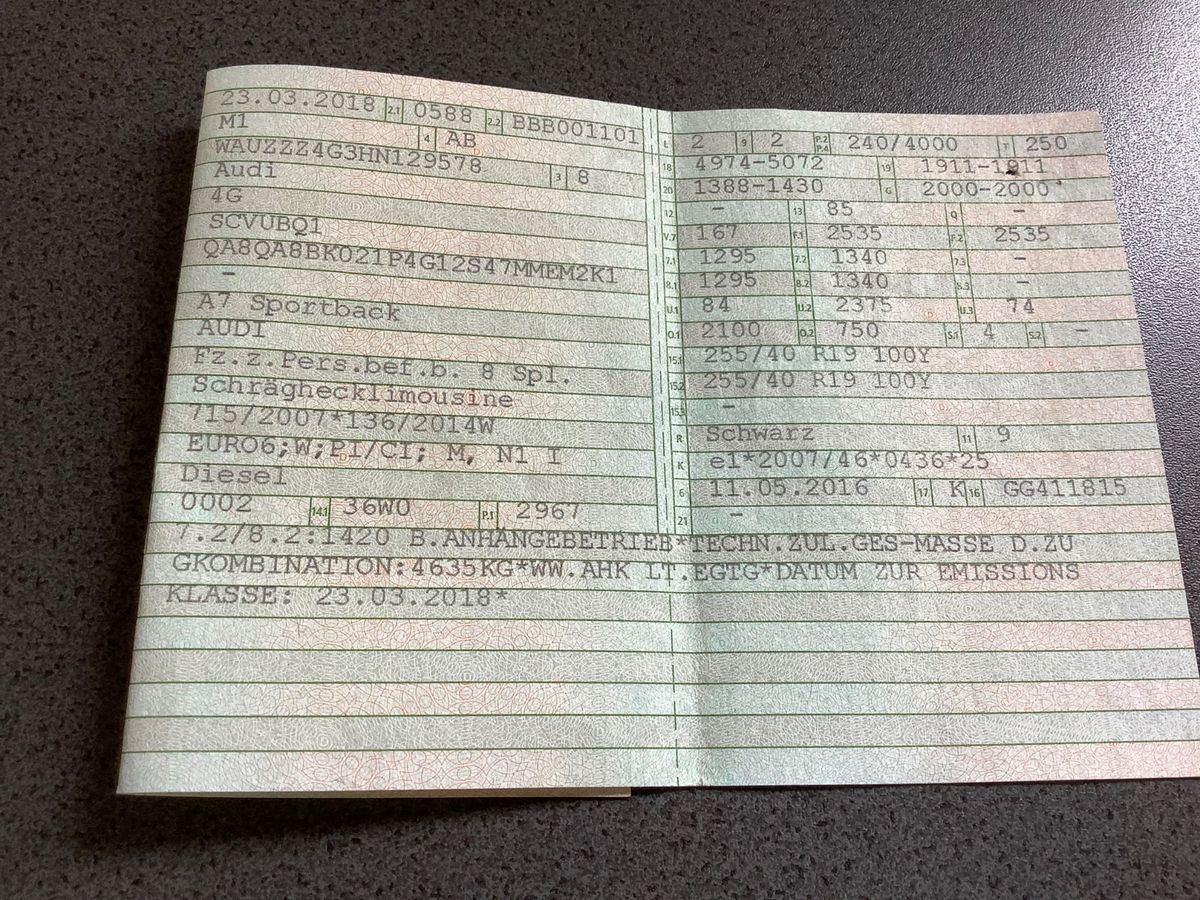 23.03.2018 2.1 0588 2.2 BBB001101
M1 4 AB
WAUZZZ4G3HN129578 3 8
Audi
4G
SCVUBQ1
QA8QA8BK021P4G12S47MMEM2K1
-
A7 Sportback
AUDI
Fz.z.Pers.bef.b. 8 Spl.
Schräghecklimousine
715/2007*136/2014W
EURO6;W;PI/CI; M, N1 I
Diesel
0002 14.1 36W0 P.1 2967
L 2 9 2 P.2 P.4 240/4000 T 250
18 4974-5072 19 1911-1911
20 1388-1430 G 2000-2000
12 - 13 85 Q -
V.7 167 F.1 2535 F.2 2535
7.1 1295 7.2 1340 7.3 -
8.1 1295 8.2 1340 8.3 -
U.1 84 U.2 2375 U.3 74
O.1 2100 O.2 750 S.1 4 S.2 -
15.1 255/40 R19 100Y
15.2 255/40 R19 100Y
15.3 -
R Schwarz 11 9
K e1*2007/46*0436*25
6 11.05.2016 17 K 16 GG411815
21 -
7.2/8.2:1420 B.ANHÄNGEBETRIEB*TECHN.ZUL.GES-MASSE D.ZU
GKOMBINATION:4635KG*WW.AHK LT.EGTG*DATUM ZUR EMISSIONS
KLASSE: 23.03.2018*